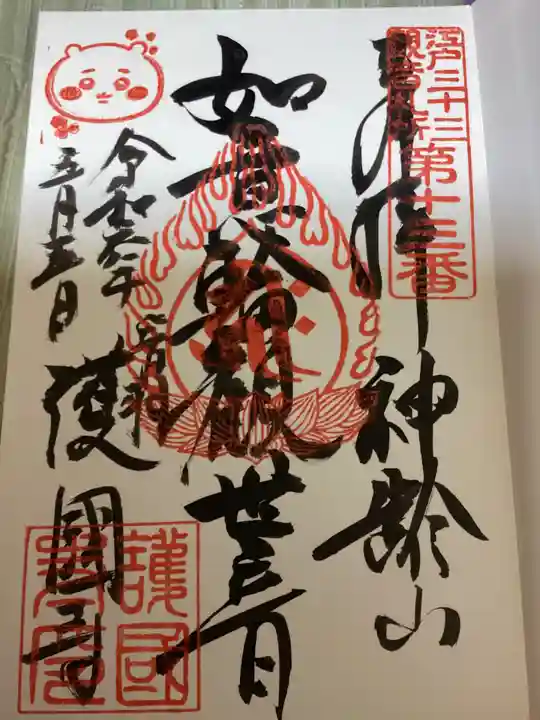 江戸三十三
観音札所
第十三番
奉拝
神齢山
如意輪観世音
音羽
護國寺
令和六年
五月五日
護國寺